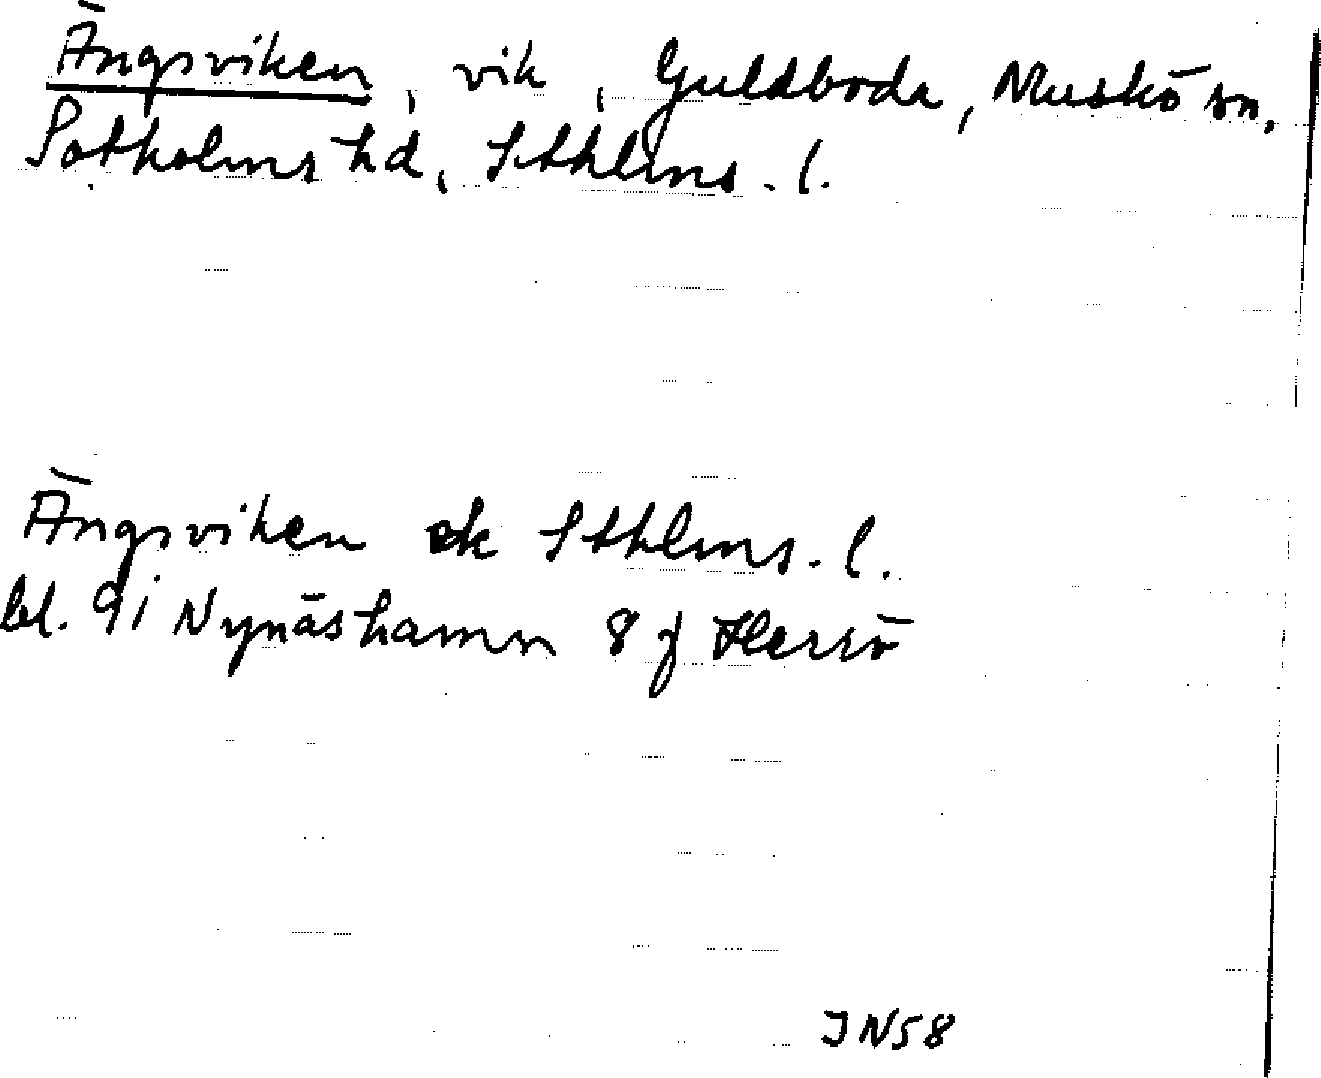 Ängsviken, vik, Guldboda, Muskö sn,
Sotholms hd, Sthlms. l.
Ängsviken ek Sthlms. l.
bl. 9i Nynäshamn 8 j Herrö
JN58